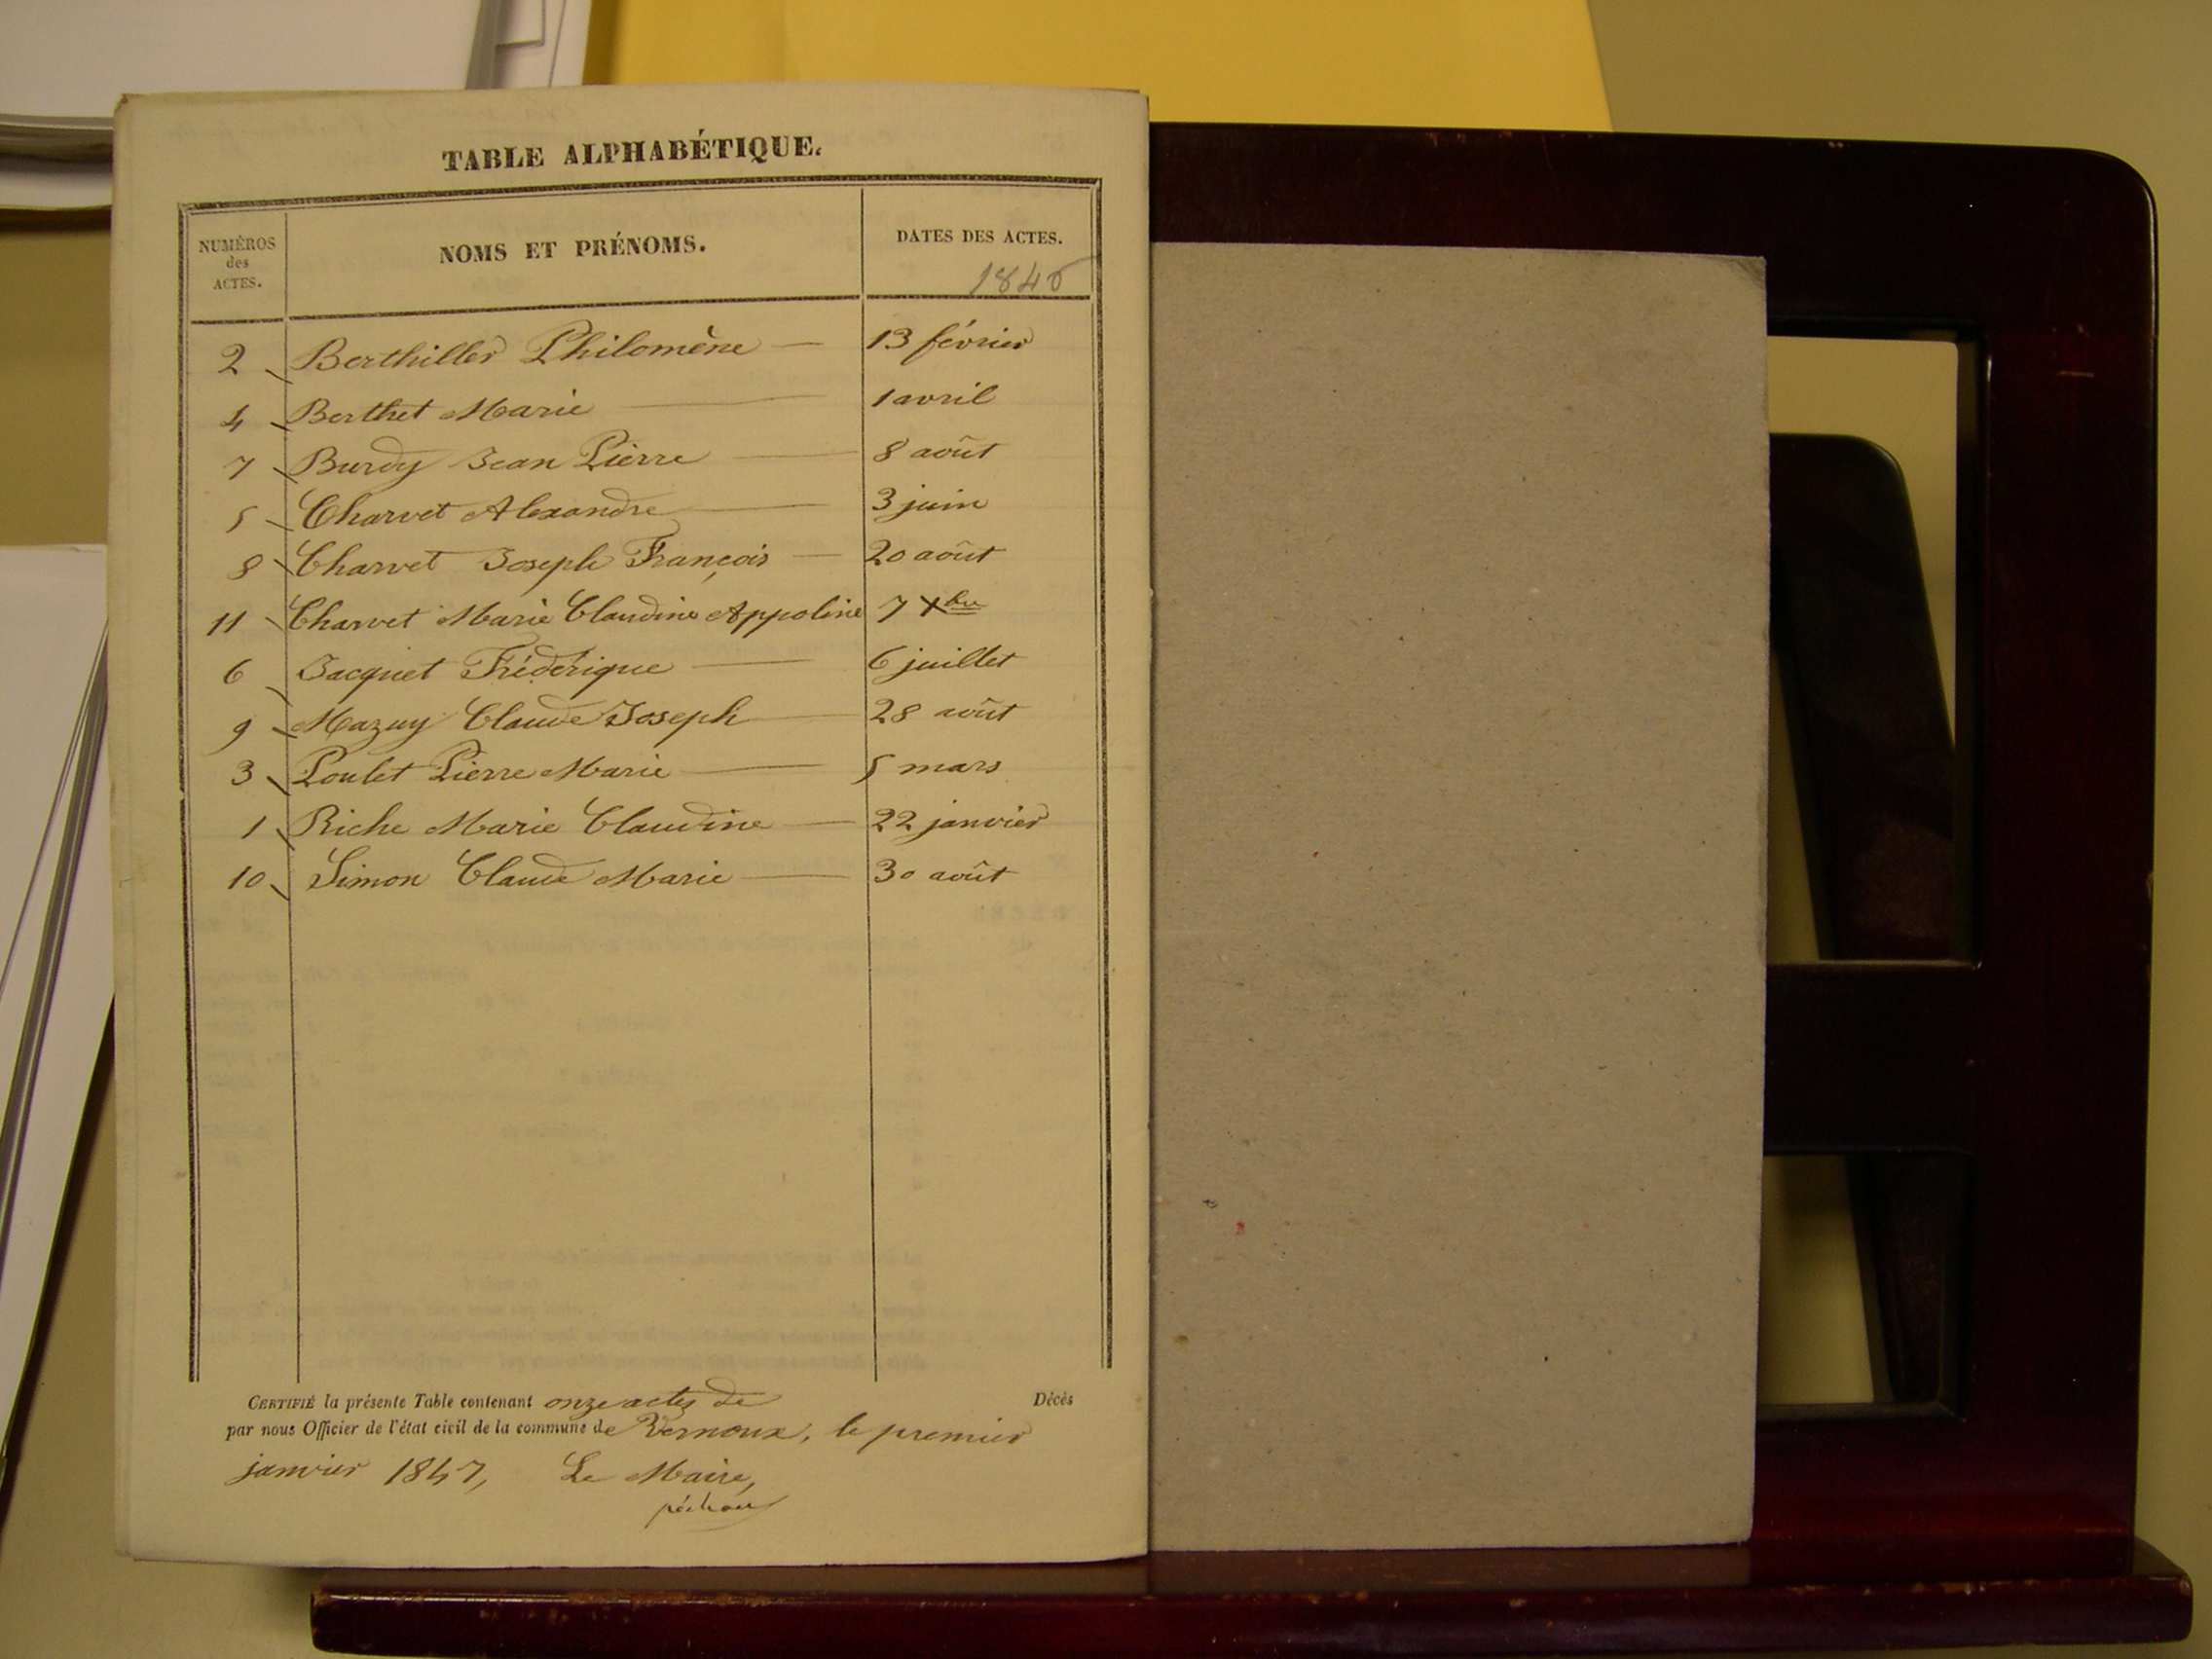 TABLE ALPHABÉTIQUE.
NUMÉROS
des
ACTES.
NOMS ET PRÉNOMS.
DATES DES ACTES.
1846
2 Berthiller Philomène 13 février
4 Berthet Marie 1 avril
7 Burdy Jean Pierre 8 août
5 Charvet Alexandre 3 juin
8 Charvet Joseph François 20 août
11 Charvet Marie Claudine Appoline 7 Xbre
6 Jacquet Fréderique 6 juillet
9 Mazuy Claude Joseph 28 août
3 Poulet Pierre Marie 5 mars
1 Riche Marie Claudine 22 janvier
10 Simon Claude Marie 30 août
CERTIFIÉ la présente Table contenant onze actes de Décès
par nous Officier de l'état civil de la commune de Vernoux, le premier
janvier 1847, Le Maire,